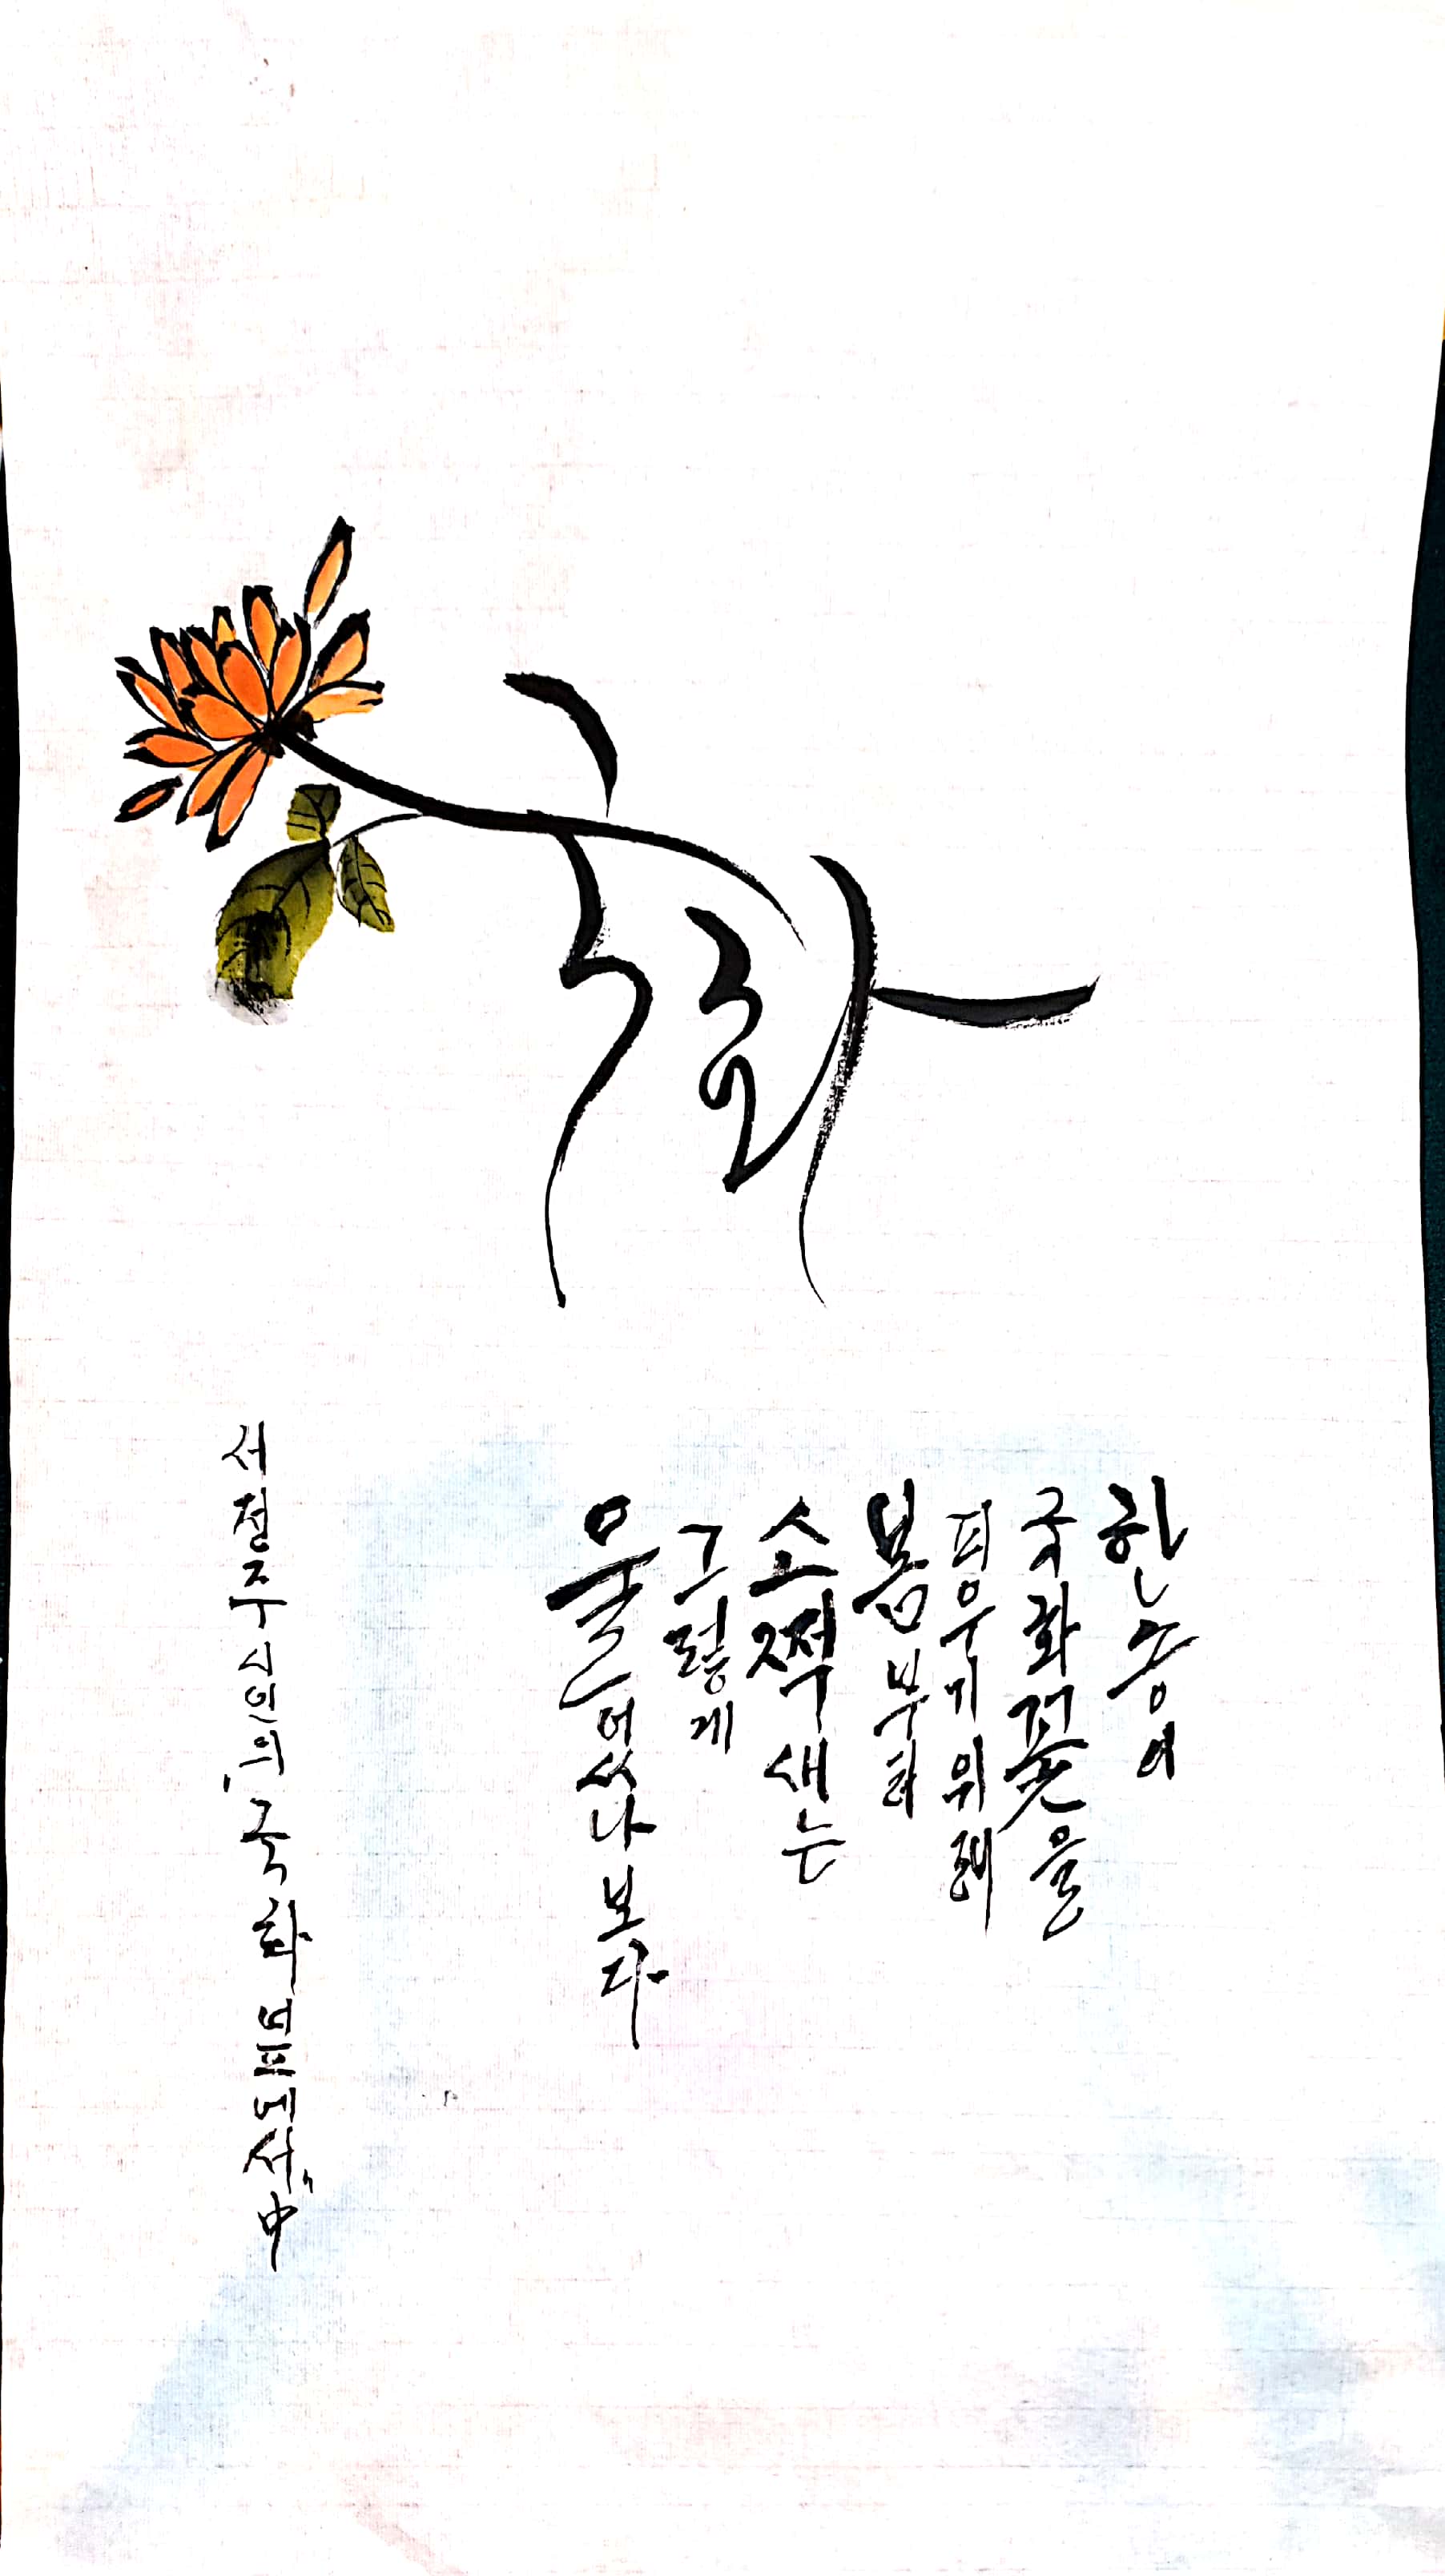 국화
한송이
국화꽃을
피우기위해
봄부터
소쩍새는
그렇게
울었나보다
서정주시인의 "국화옆에서" 中